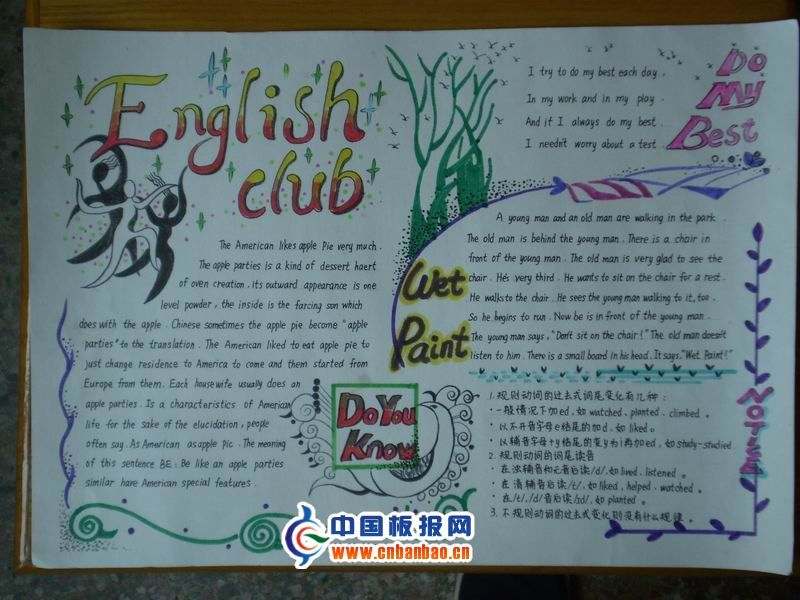 English
club
The American likes apple Pie very much.
The apple parties is a kind of dessert haert
of oven creation, its outward appearance is one
level powder, the inside is the farcing son which
does with the apple. Chinese sometimes the apple pie become "apple
parties" to the translation. The American liked to eat apple pie to
just change residence to America to come and them started from
Europe from them. Each housewife usually does an
apple parties. Is a characteristics of American
life for the sake of the elucidation, people
often say. As American as apple pic. The meaning
of this sentence BE: Be like an apple parties
similar hare American special features.
Do You
Know
I try to do my best each day.
In my work and in my play.
And if I always do my best.
I needn't worry about a test.
Do
My
Best
Wet
Paint
A young man and an old man are walking in the park.
The old man is behind the young man. There is a chair in
front of the young man. The old man is very glad to see the
chair. He's very third. He wants to sit on the chair for a rest.
He walks to the chair. He sees the young man walking to it, too.
So he begins to run. Now be is in front of the young man.
The young man says, "Don't sit on the chair!" The old man doesn't
listen to him. There is a small board in his head. It says, "Wet Paint!"
1. 规则动词的过去式词尾变化有几种:
·一般情况下加ed, 如watched, planted, climbed。
·以不开音字母e结尾的加d, 如liked。
·以辅音字母+y结尾的变y为i再加ed, 如study-studied
2. 规则动词的词尾读音
·在浓辅音和元音后读/d/, 如lived, listened。
·在清辅音后读/t/, 如liked, helped, watched。
·在/t/, /d/音后读/ɪd/, 如planted。
3. 不规则动词的过去式变化则没有什么规律。
中国板报网
www.cnbanbao.cn